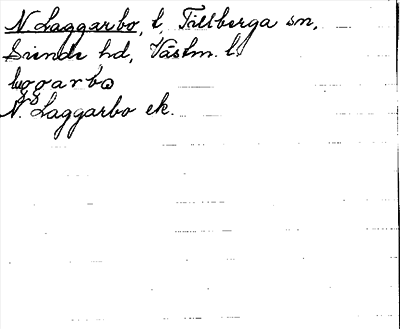 N Laggarbo, l, Tillberga sn,
Siende hd, Västm. l.
N. Laggarbo ek.